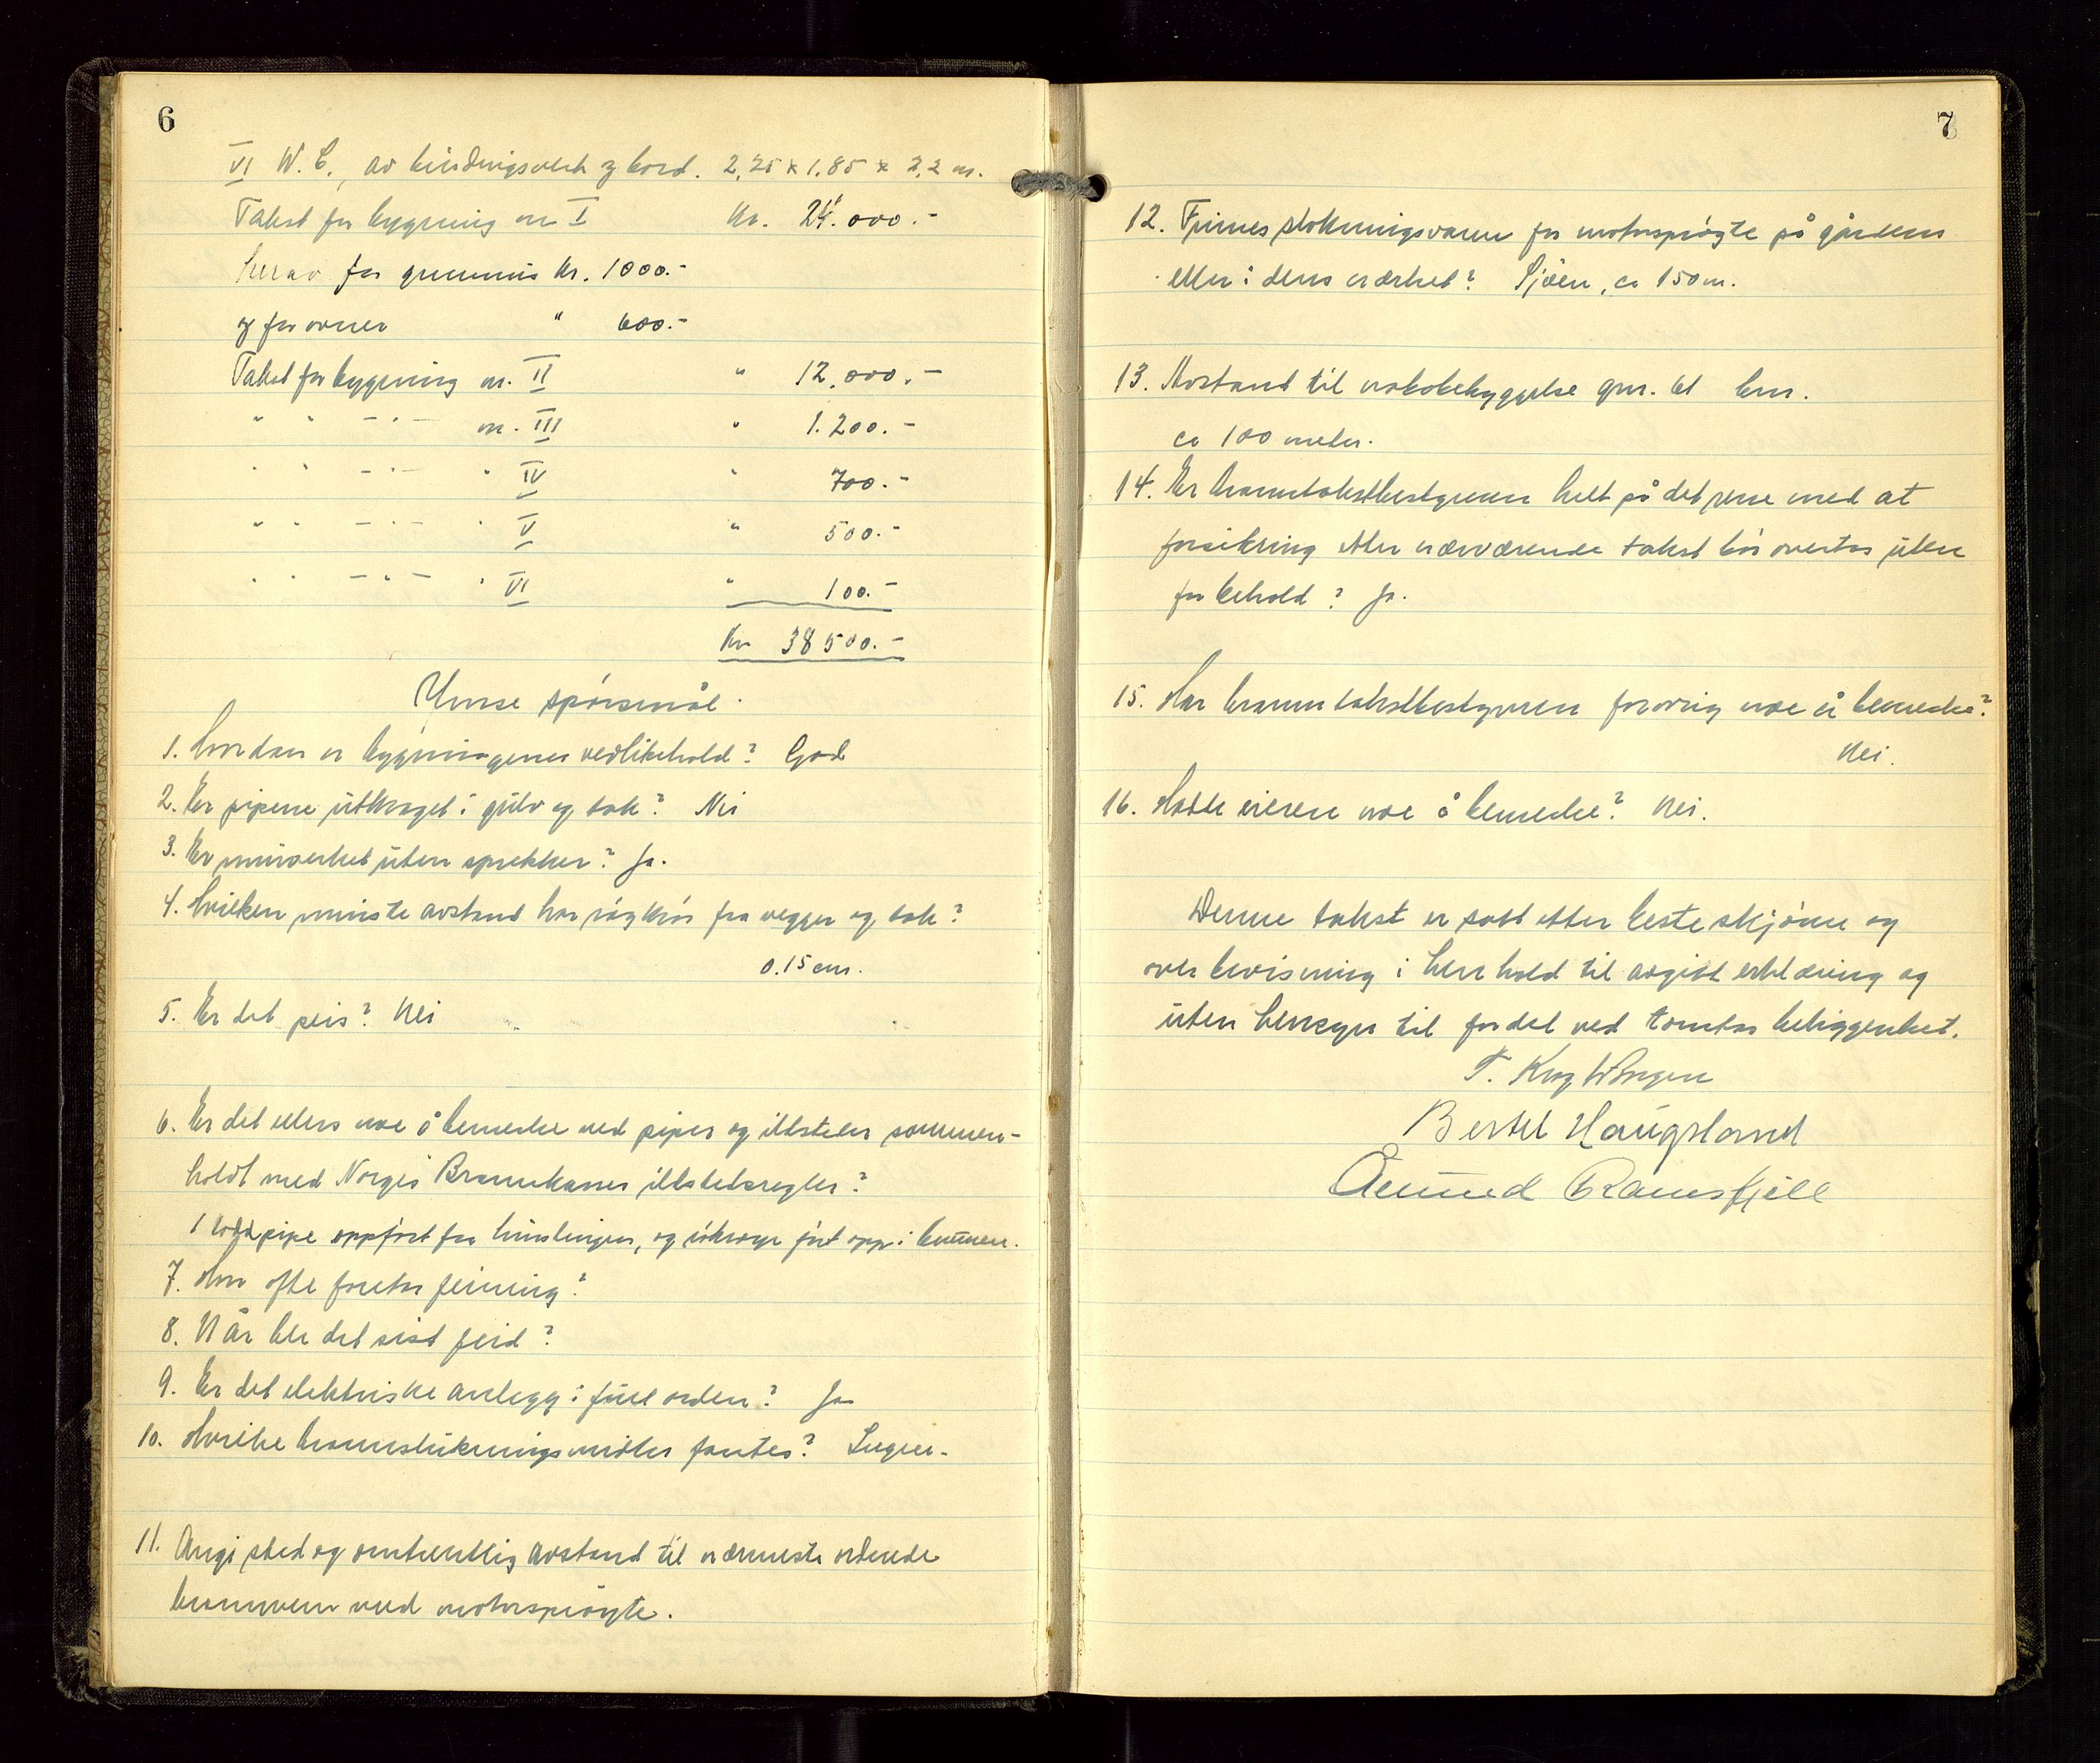 6
VI W.C., av bindingsverk og bord. 2,25 x 1.85 x 2,2 m.
Takst for bygning nr I Kr. 24.000.-
herav for grunmur kr. 1000.-
og for ovner " 600.-
Takst for bygning nr. II " 12.000.-
" " -"- nr. III " 1.200.-
" " -"- " IV " 700.-
" " -"- " V " 500.-
" " -"- " VI " 100.-
Kr 38500.-
Ymse spörsmål.
1. Hvordan er bygningenes vedlikehold? God
2. Er pipene utkraget i gulv og tak? Nei
3. Er murverket uten sprekker? Ja.
4. Hvilken minste avstand har rögkrör fra vegger og tak?
0.15 cm.
5. Er det peis? Nei
6. Er det ellers noe å bemerke ved piper og ildsteder sammen-
holdt med Norges Brannkasses ildstedsregler?
1 pipe oppfört fra og fört opp i
7. Hvor ofte foretas feining?
8. Når ble det sist feid?
9. Er det elektriske anlegg i full orden? Ja
10. Hvilke brannslukningsmidler fantes? Ingen.
11. Angi sted og omtrentlig avstand til nærmeste ordnede
brannvern med motorspröyte.
7
12. Finnes slokningsvann for motorspröyte på gårdens
eller i dens nærhet? Sjöen, ca 150 m.
13. Avstand til nabobebyggelse gnr. 61 bnr.
ca 100 meter.
14. Er branntakstbestyreren helt på det rene med at
forsikring etter nærværende takst bör overtas uten
forbehold? Ja.
15. Har branntakstbestyreren forövrig noe å bemerke?
Nei.
16. Hadde eieren noe å bemerke? Nei.
Denne takst er satt etter beste skjönn og
overbevisning i henhold til avgitt erklæring og
uten hensyn til fordel ved tomtas beliggenhet.
T.
Bertel Haugsland
Åmund Ramsfjell